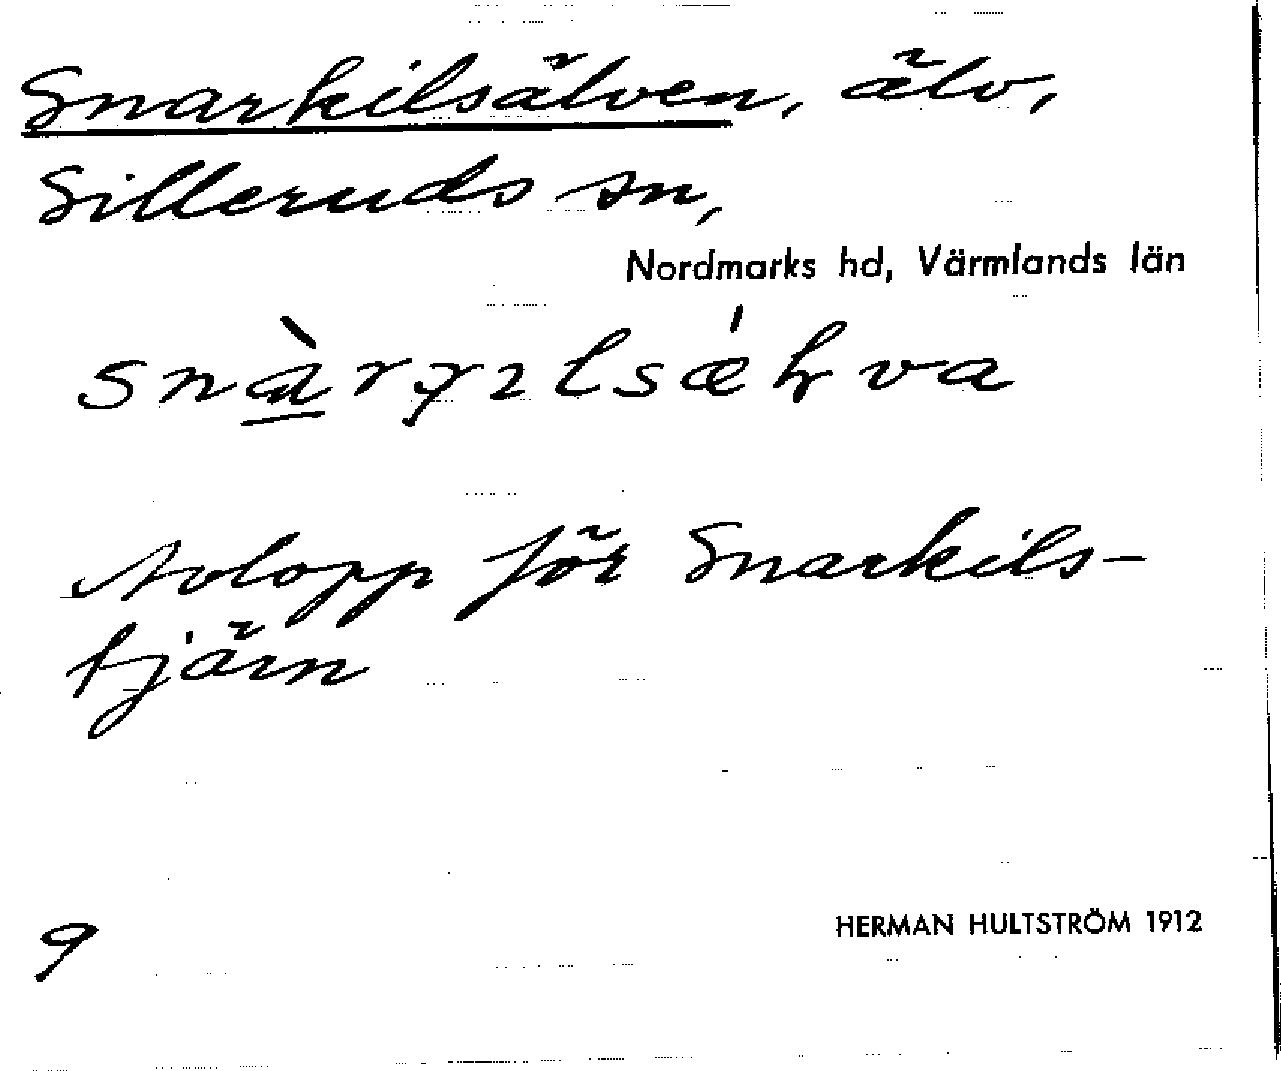 Snarkilsälven, älv,
Silleruds sn,
Nordmarks hd, Värmlands län
Avlopp för Snarkils-
tjärn
9
HERMAN HULTSTRÖM 1912